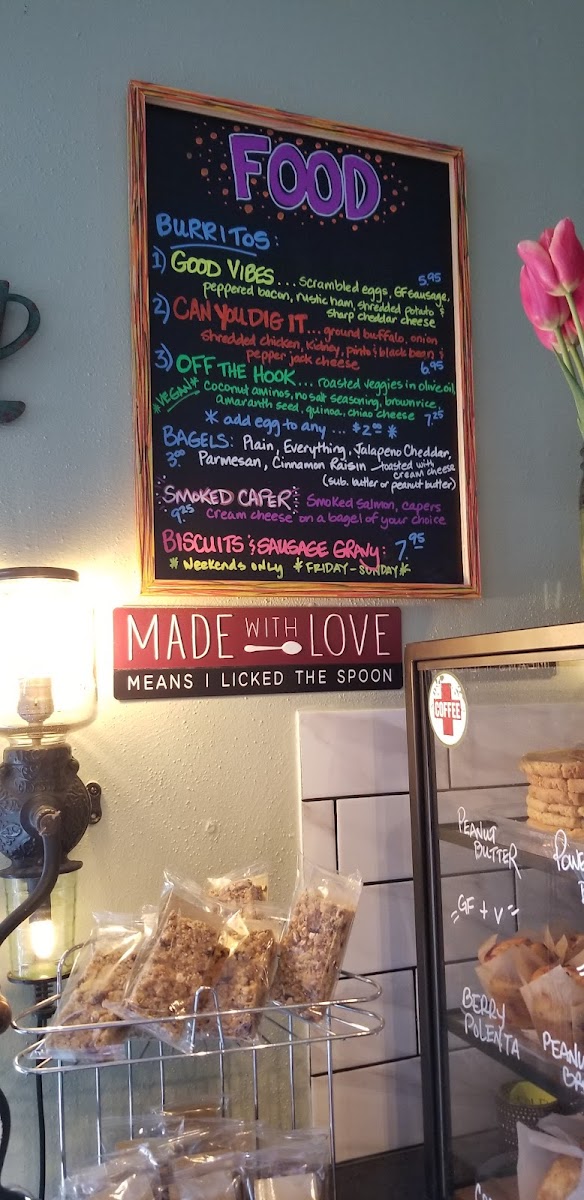 FOOD
BURRITOS:
1) GOOD VIBES... scrambled eggs, GF sausage, 5.95
peppered bacon, rustic ham, shredded potato &
sharp cheddar cheese
2) CAN YOU DIG IT... ground buffalo, onion
shredded chicken, kidney, pinto & black bean &
pepper jack cheese 6.95
3) OFF THE HOOK... roasted veggies in olive oil,
*VEGAN* coconut aminos, no salt seasoning, brown rice
amaranth seed, quinoa, chiao cheese 7.25
* add egg to any ... $2.00 *
BAGELS: Plain, Everything, Jalapeno Cheddar,
3.00 Parmesan, Cinnamon Raisin toasted with
cream cheese
(sub. butler or peanut butter)
SMOKED CAPER: Smoked salmon, capers
9.25 cream cheese on a bagel of your choice
BISCUITS & SAUSAGE GRAVY: 7.95
* Weekends only * FRIDAY - SUNDAY *
MADE WITH LOVE
MEANS I LICKED THE SPOON
COFFEE
PEANUT
BUTTER
=GF + V=
BERRY
POLENTA